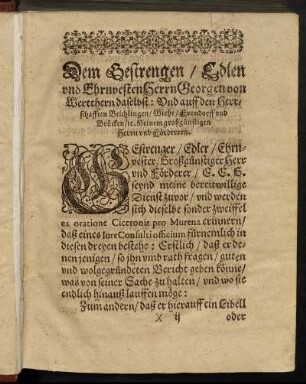 Dem Gestrengen / Edlen
vnd Ehrnvesten Herrn Georgen von
Werthern daselbst: Vnd auff den Herr-
schafften Beichlingen / Wiehe / Frondorff vnd
Brücken / etc. Meinem großgünstigen
Herrn vnd Förderern.
GEstrenger / Edler / Ehrn-
vester / Großgünstiger Herr
vnd Förderer / E. E. G.
seynd meine bereitwillige
Dienst zuvor / vnd werden
sich dieselbe sonder zweiffel
ex oratione Ciceronis pro Murena erinnern /
daß eines Iure Consulti officium fürnemlich in
diesen dreyen bestehe: Erstlich / daß er de-
nen jenigen / so jhn vmb rath fragen / guten
vnd wolgegründeten Bericht geben könne /
was von seiner Sache zu halten / vnd wo sie
endlich hinauß lauffen möge:
Zum andern / daß er hierauff ein Libell
)( ij oder